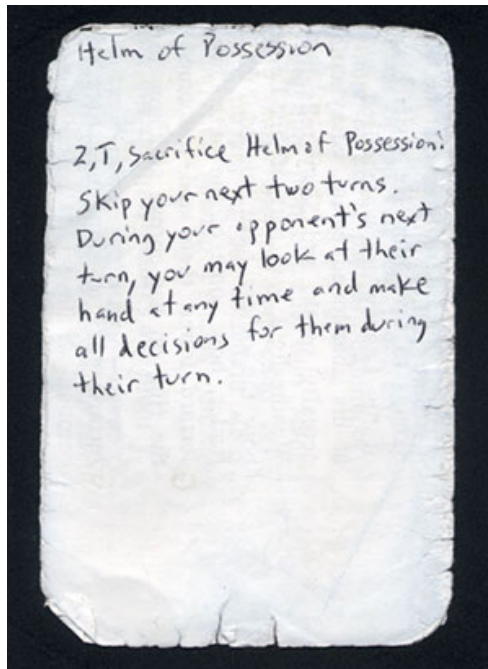 Helm of Possession
2,T, Sacrifice Helm of Possession:
Skip your next two turns.
During your opponent's next
turn, you may look at their
hand at any time and make
all decisions for them during
their turn.